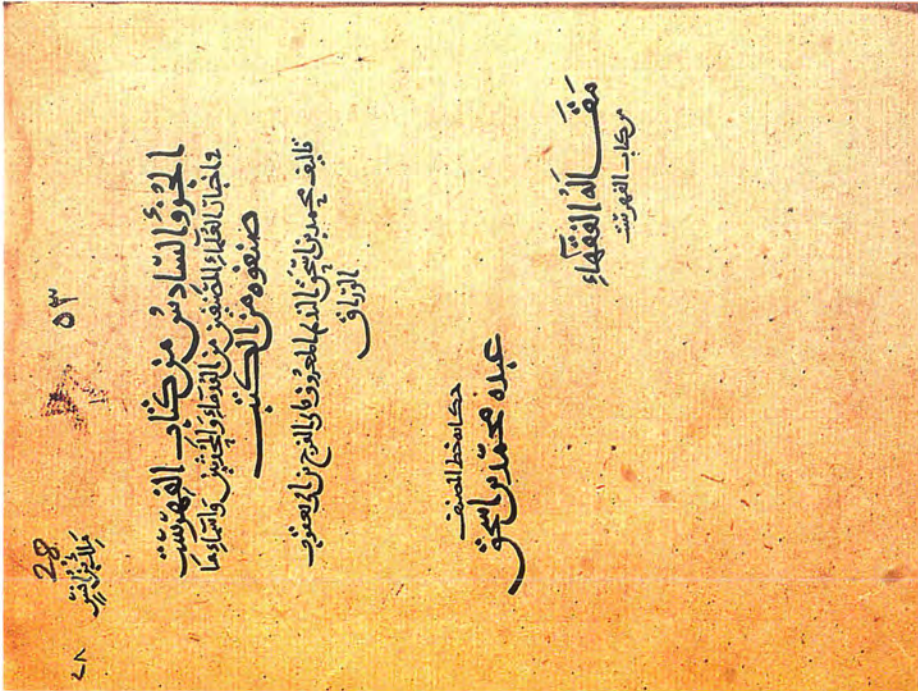 ٢٨
28
٥٣
الجزؤ السادس من كتاب الفهرست
في اخبار العلماء المصنفين من القدماء والمحدثين واسماء ما
صنفوه من الكتب
تاليف محمد بن اسحق النديم المعروف بابي الفرج بن ابي يعقوب
الوراق
حكاية خط المصنف
عبده محمد بن اسحق
مقالة الفقهاء
من كتاب الفهرست